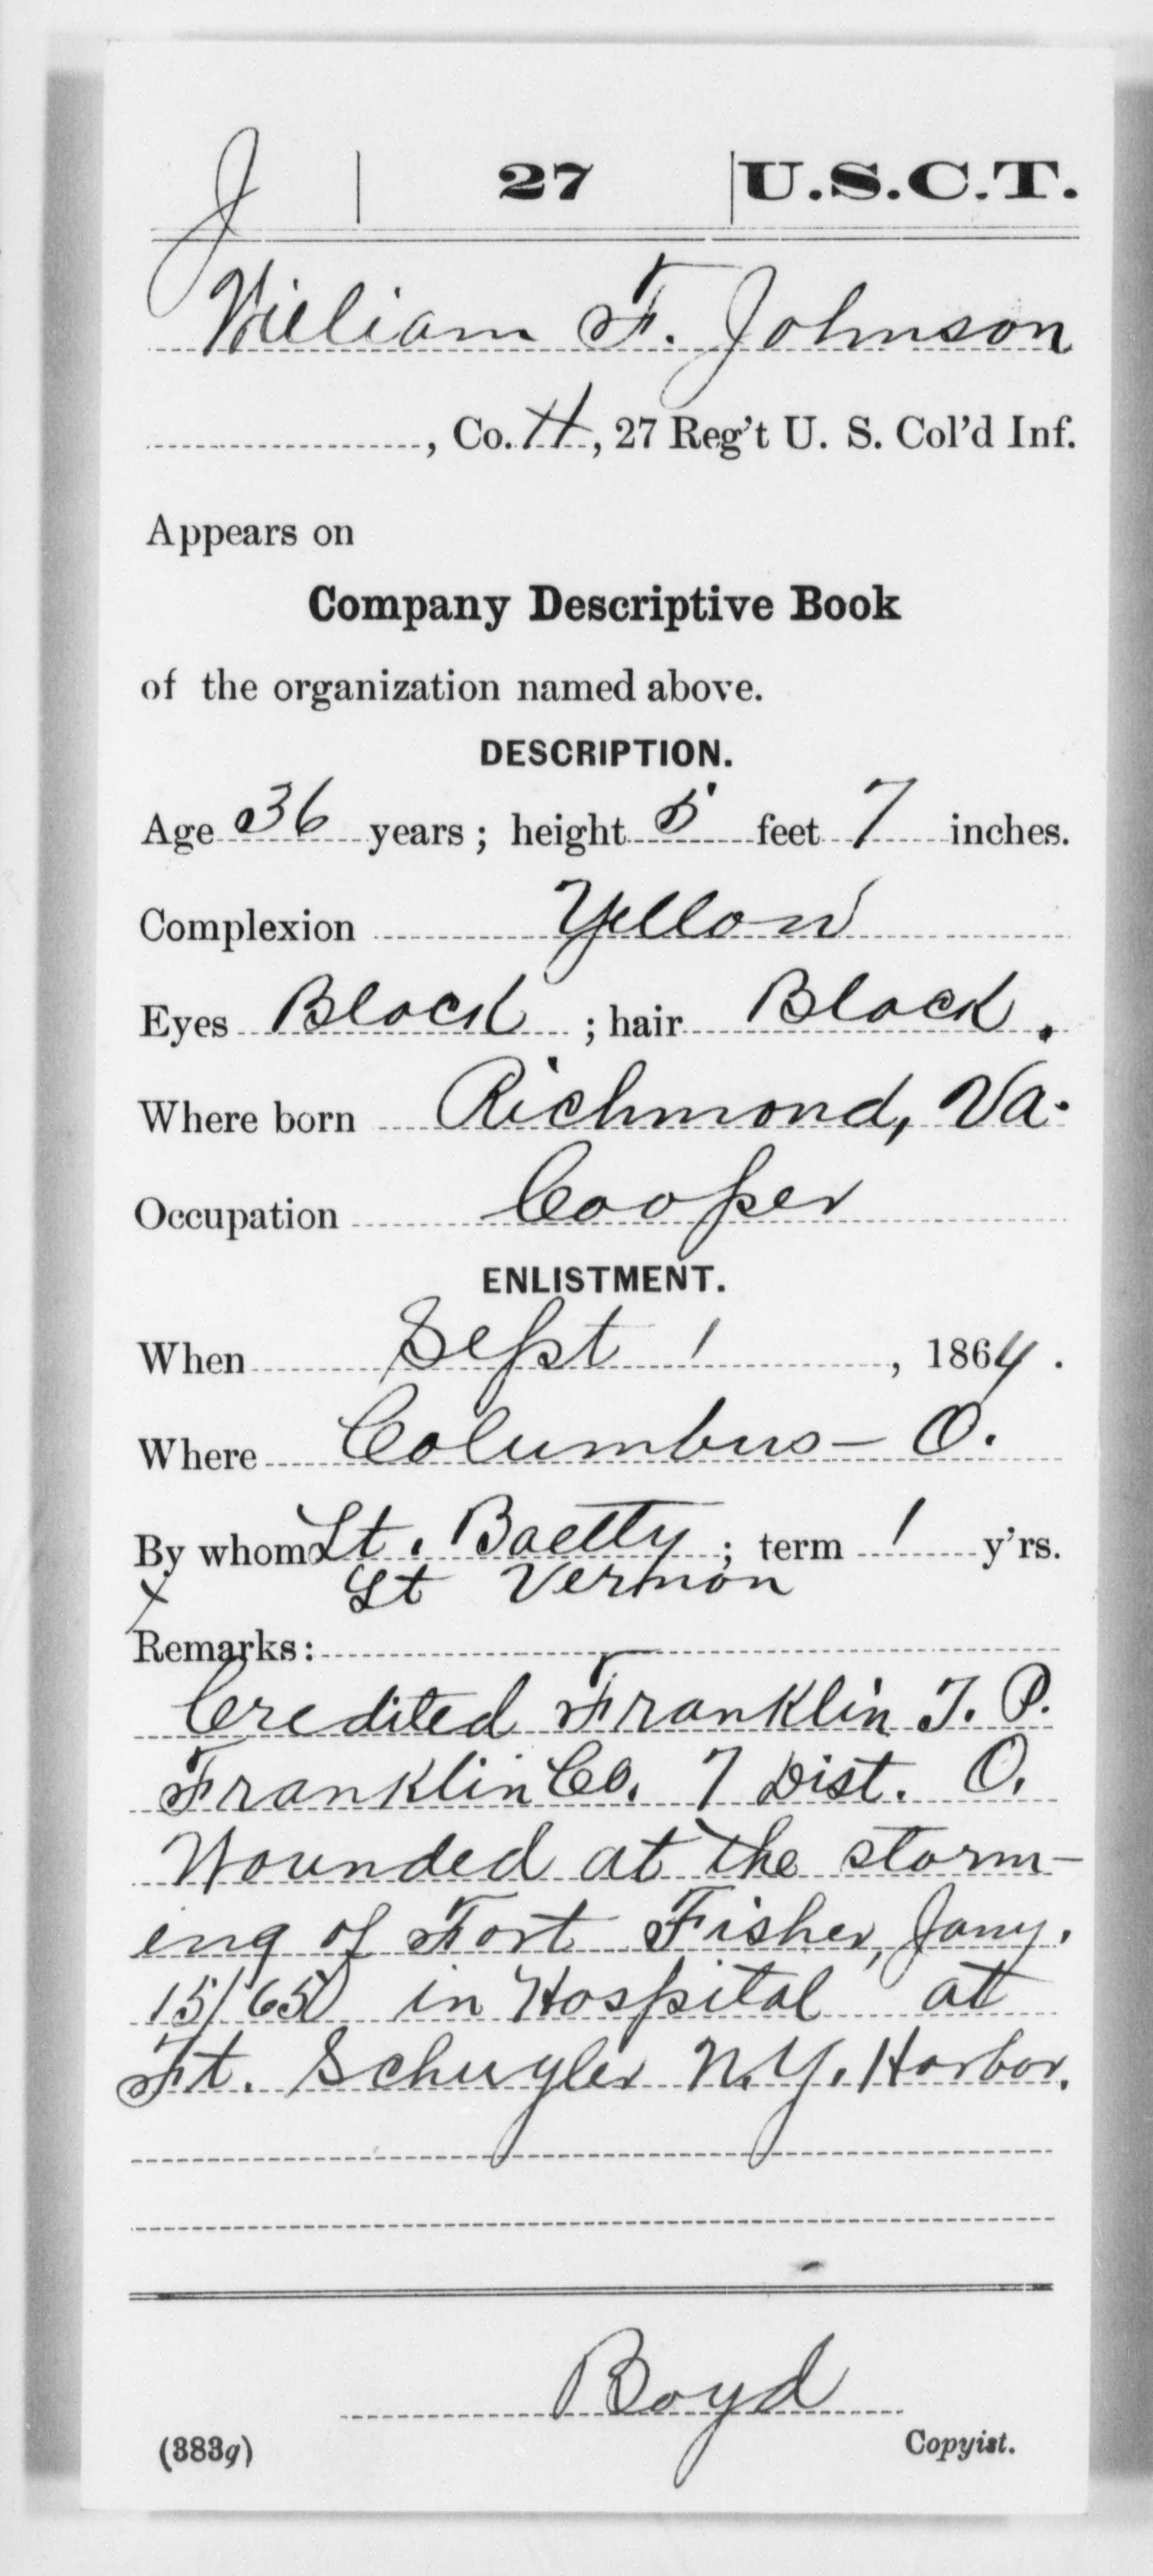 J | 27 | U.S.C.T.
William F. Johnson
, Co. H, 27 Reg't U. S. Col'd Inf.
Appears on
Company Descriptive Book
of the organization named above.
DESCRIPTION.
Age 36 years; height 5 feet 7 inches.
Complexion Yellow
Eyes Black; hair Black.
Where born Richmond, Va.
Occupation Cooper
ENLISTMENT.
When Sept 1, 1864.
Where Columbus - O.
By whom Lt. Baetty; term 1 y'rs.
x Lt Vernon
Remarks:
Credited Franklin T. P.
Franklin Co. 7 Dist. O.
Wounded at the storm-
ing of Fort Fisher, Jany.
15/65 in Hospital at
Ft. Schuyler N.Y. Harbor.
Boyd
(383g) Copyist.